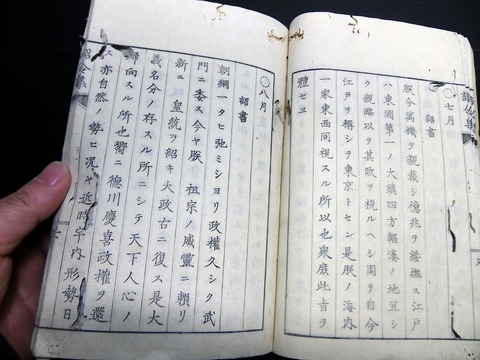 ○七月
詔書
朕今萬機ヲ親裁シ億兆ヲ綏撫ス江戸
ハ東國第一ノ大鎮四方輻湊ノ地宜シ
ク親臨以テ其政ヲ視ルヘシ因テ自今
江戸ヲ稱シテ東京トセン是朕ノ海内
一家東西同視スル所以也衆庶此旨ヲ
體セヨ
○八月
詔書
朝綱一タヒ弛ミシヨリ政權久シク武
門ニ委ス今ヤ朕 祖宗ノ威靈ニ頼リ
新ニ 皇統ヲ紹キ大政古ニ復ス是大
義名分ノ存スル所ニシテ天下人心ノ
歸向スル所也嚮ニ德川慶喜政權ヲ還
ス亦自然ノ勢ヒ況ヤ近時宇内形勢日